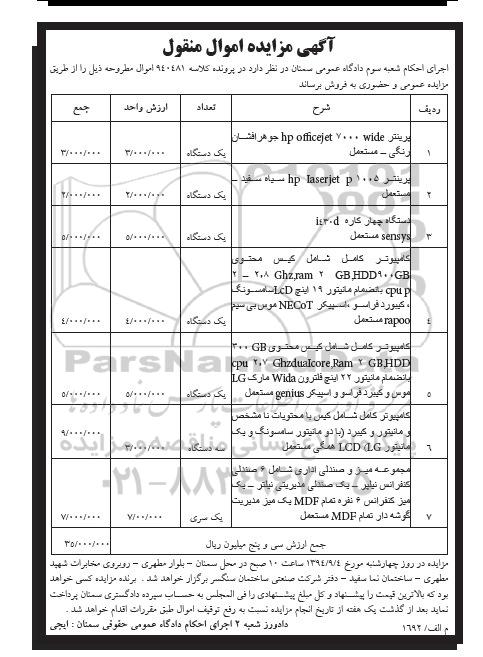 آگهی مزایده اموال منقول
اجرای احکام شعبه سوم دادگاه عمومی سمنان در نظر دارد در پرونده کلاسه ۹۴۰۴۸۱ اموال مطروحه ذیل را از طریق
مزایده عمومی و حضوری به فروش برساند
ردیف شرح تعداد ارزش واحد جمع
پرینتر hp officejet ۷۰۰۰ wide جوهرافشان
۱ رنگی – مستعمل یک دستگاه ۳/۰۰۰/۰۰۰ ۳/۰۰۰/۰۰۰
پرینتر hp laserjet p ۱۰۰۵ سیاه سفید –
۲ مستعمل یک دستگاه ۲/۰۰۰/۰۰۰ ۲/۰۰۰/۰۰۰
دستگاه چهار کاره i۴۳۰d
۳ sensys مستعمل یک دستگاه ۵/۰۰۰/۰۰۰ ۵/۰۰۰/۰۰۰
کامپیوتر کامل شامل کیس محتوی
۲ – ۲۰۸ Ghz,ram ۲ GB,HDD۹۰۰GB
cpu p بانضمام مانیتور ۱۹ اینچ LcD سامسونگ
، کیبورد فراسو ،اسپیکر NECoT موس بی سیم
۴ rapoo مستعمل یک دستگاه ۴/۰۰۰/۰۰۰ ۴/۰۰۰/۰۰۰
کامپیوتر کامل شامل کیس محتوی ۳۰۰ GB
cpu ۲۰۷ Ghzdualcore,Ram ۲ GB,HDD
بانضمام مانیتور ۲۲ اینچ فلترون Wida مارک LG
۵ موس و کیبرد فراسو و اسپیکر genius مستعمل یک دستگاه ۵/۰۰۰/۰۰۰ ۵/۰۰۰/۰۰۰
کامپیوتر کامل شامل کیس با محتویات نا مشخص
و مانیتور و کیبرد (با دو مانیتور سامسونگ و یک
۶ مانیتور LCD (LG همگی مستعمل سه دستگاه ۳/۰۰۰/۰۰۰ ۹/۰۰۰/۰۰۰
مجموعه میز و صندلی اداری شامل ۶ صندلی
کنفرانس نیلپر – یک صندلی مدیریتی نیلپر – یک
میز کنفرانس ۶ نفره تمام MDF یک میز مدیریت
۷ گوشه دار تمام MDF مستعمل یک سری ۷/۰۰/۰۰۰ ۷/۰۰۰/۰۰۰
جمع ارزش سی و پنج میلیون ریال ۳۵/۰۰۰/۰۰۰
مزایده در روز چهارشنبه مورخ ۱۳۹۴/۹/۴ ساعت ۱۰ صبح در محل سمنان – بلوار مطهری – روبروی مخابرات شهید
مطهری – ساختمان نما سفید – دفتر شرکت صنعتی ساختمان سنگسر برگزار خواهد شد . برنده مزایده کسی خواهد
بود که بالاترین قیمت را پیشنهاد و کل مبلغ پیشنهادی را فی المجلس به حساب سپرده دادگستری سمنان پرداخت
نماید بعد از گذشت یک هفته از تاریخ انجام مزایده نسبت به رفع توقیف اموال طبق مقررات اقدام خواهد شد .
م الف/ ۱۶۹۲ دادورز شعبه ۲ اجرای احکام دادگاه عمومی حقوقی سمنان : ایچی
ParsNamadData
۰۲۱-۸۸۳۴۹۶۷۰